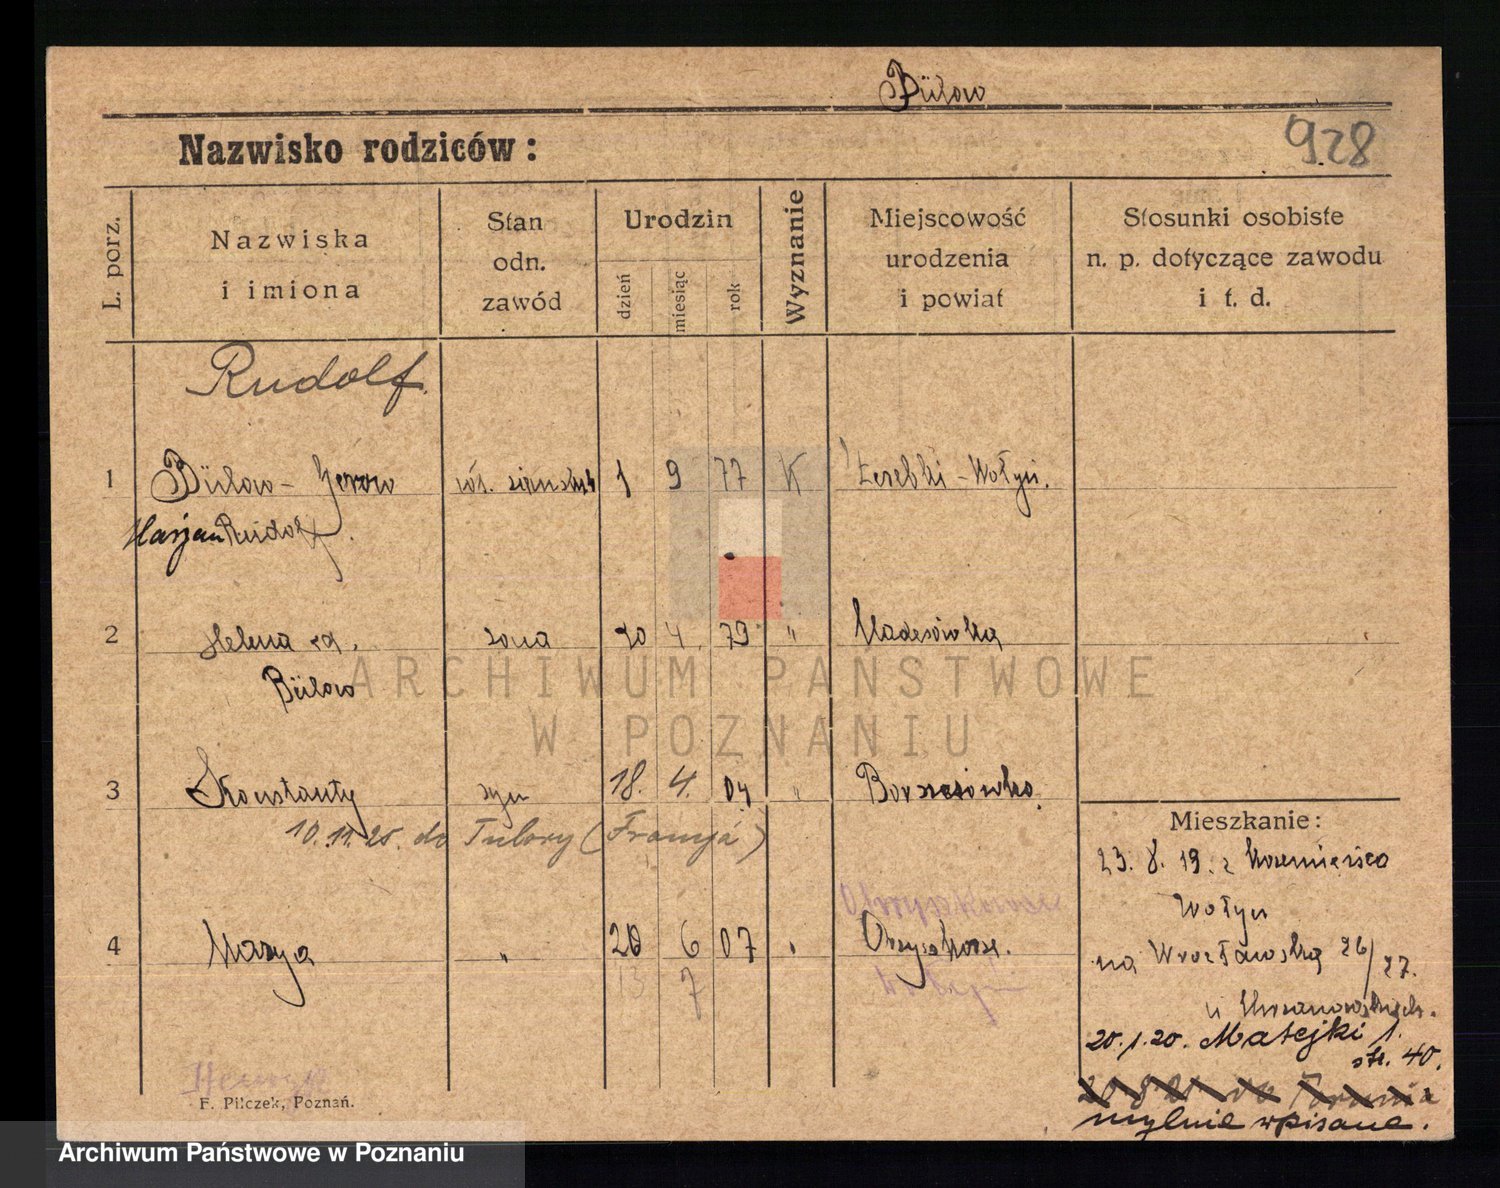 Bülow
Nazwisko rodziców:
928
L. porz.
Nazwiska
i imiona
Stan
odn.
zawód
Urodzin
dzień
miesiąc
rok
Wyznanie
Miejscowość
urodzenia
i powiat
Stosunki osobiste
n. p. dotyczące zawodu
i t. d.
Rudolf.
1 Bülow - Jerzy 1 9 77 K - Wołyń.
Marjan Rudolf.
2 Helena żona 20 4. 79 "
Bülow
3 Konstanty syn 18. 4. 04 "
10.11.25. do (Francja)
4 Marya " 20 6 07 "
13 7
Mieszkanie:
23. 8. 19. z Krzemieńca
Wołyń
na Wrocławską 26/27.
u
20.1.20. Matejki 1.
str. 40.
do Torunia
mylnie wpisane.
F. Pilczek, Poznań.
ARCHIWUM PAŃSTWOWE
W POZNANIU
Archiwum Państwowe w Poznaniu